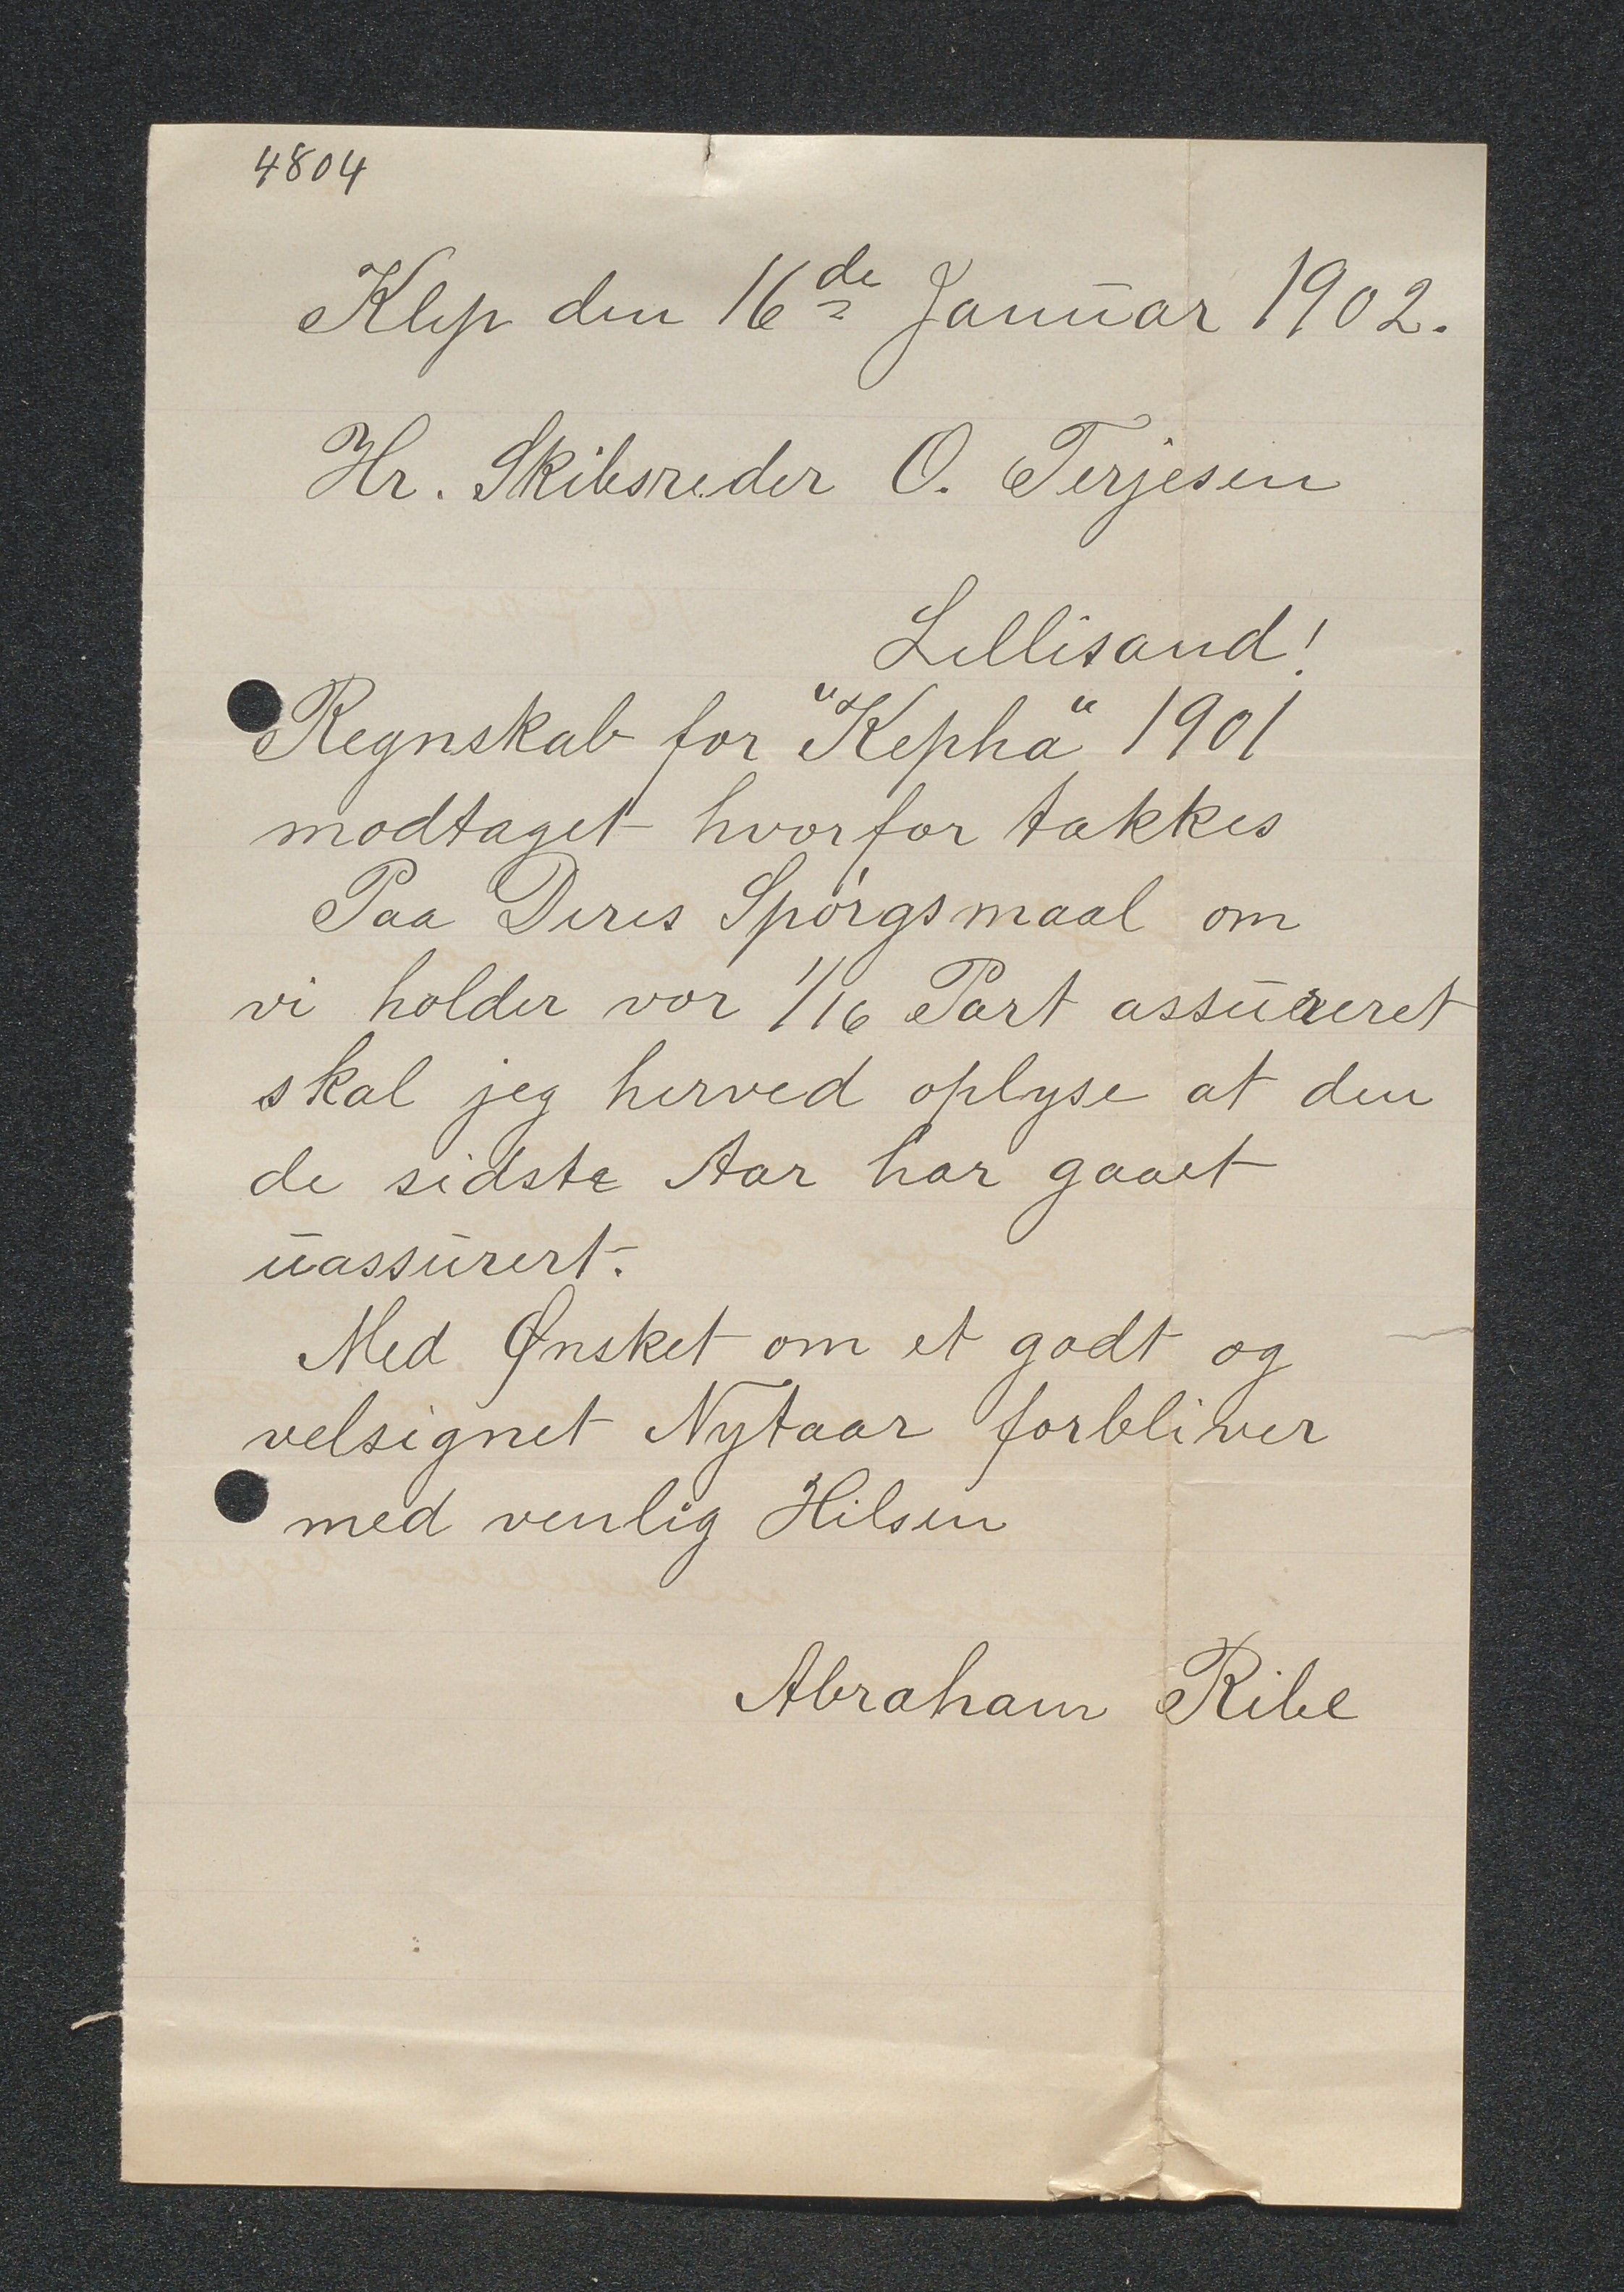 4804
Klep den 16de Januar 1902.
Hr. Skibsreder O. Terjesen
Lillesand!
Regnskab for "Kepha" 1901
modtaget hvorfor takkes
Paa Deres Spórgsmaal om
vi holder vor 1/16 Part assureret
skal jeg herved oplyse at den
de sidste Aar har gaaet
uassurert.
Med Ønsket om et godt og
velsignet Nytaar forbliver
med venlig Hilsen
Abraham Ribe